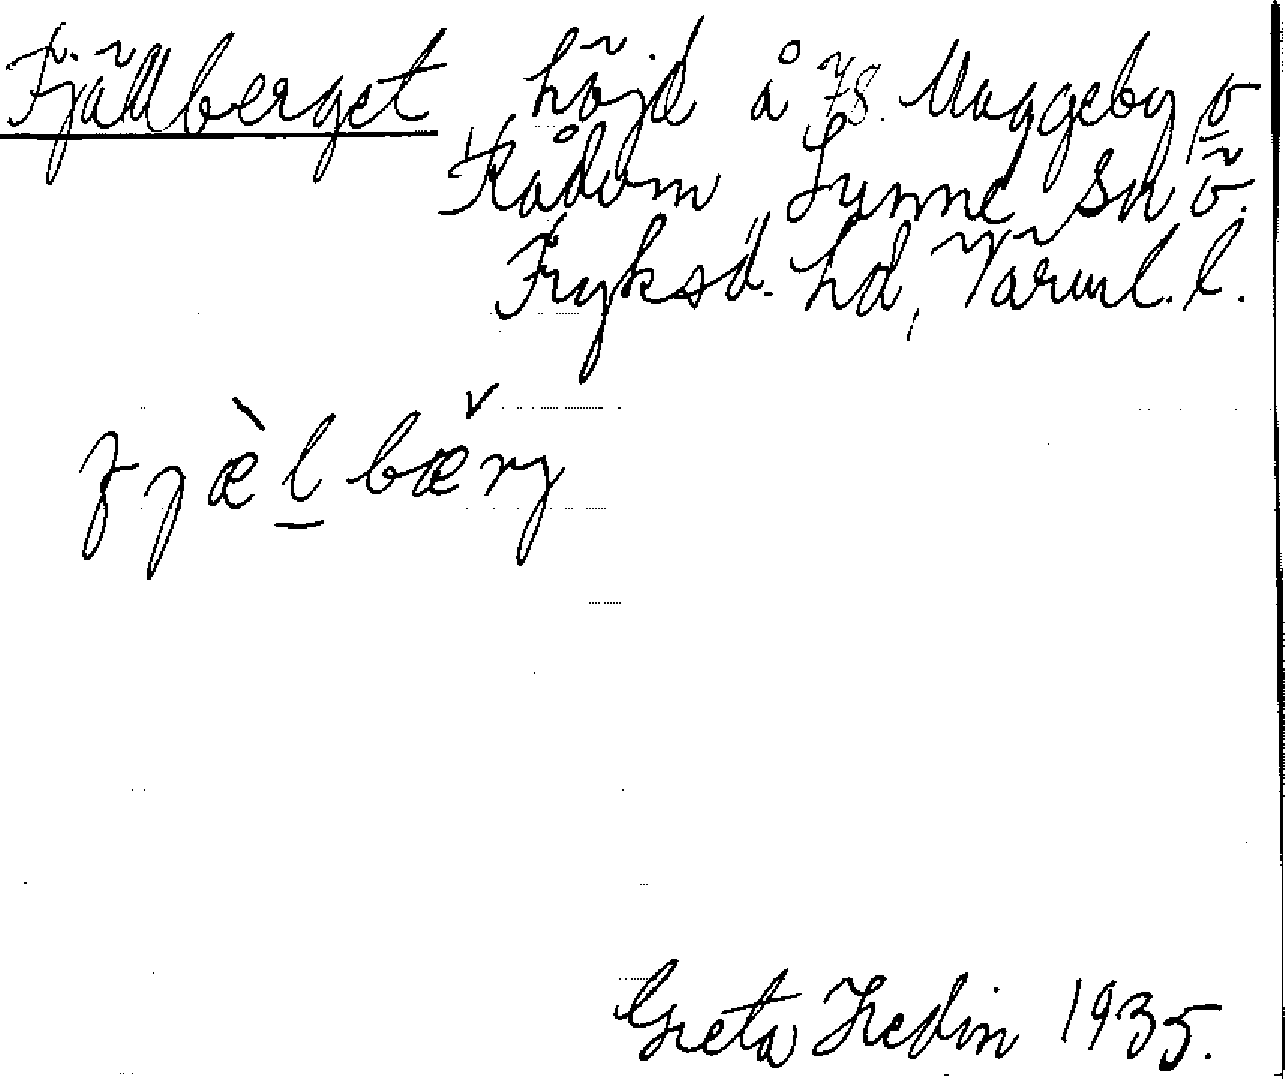 Fjällberget höjd å 78. Maggeby, o
Rådom Sunne sn ö.
Fryksd. hd, Värml. l.
fjæ̀l bæ̌rj
Greta Hedin 1935.